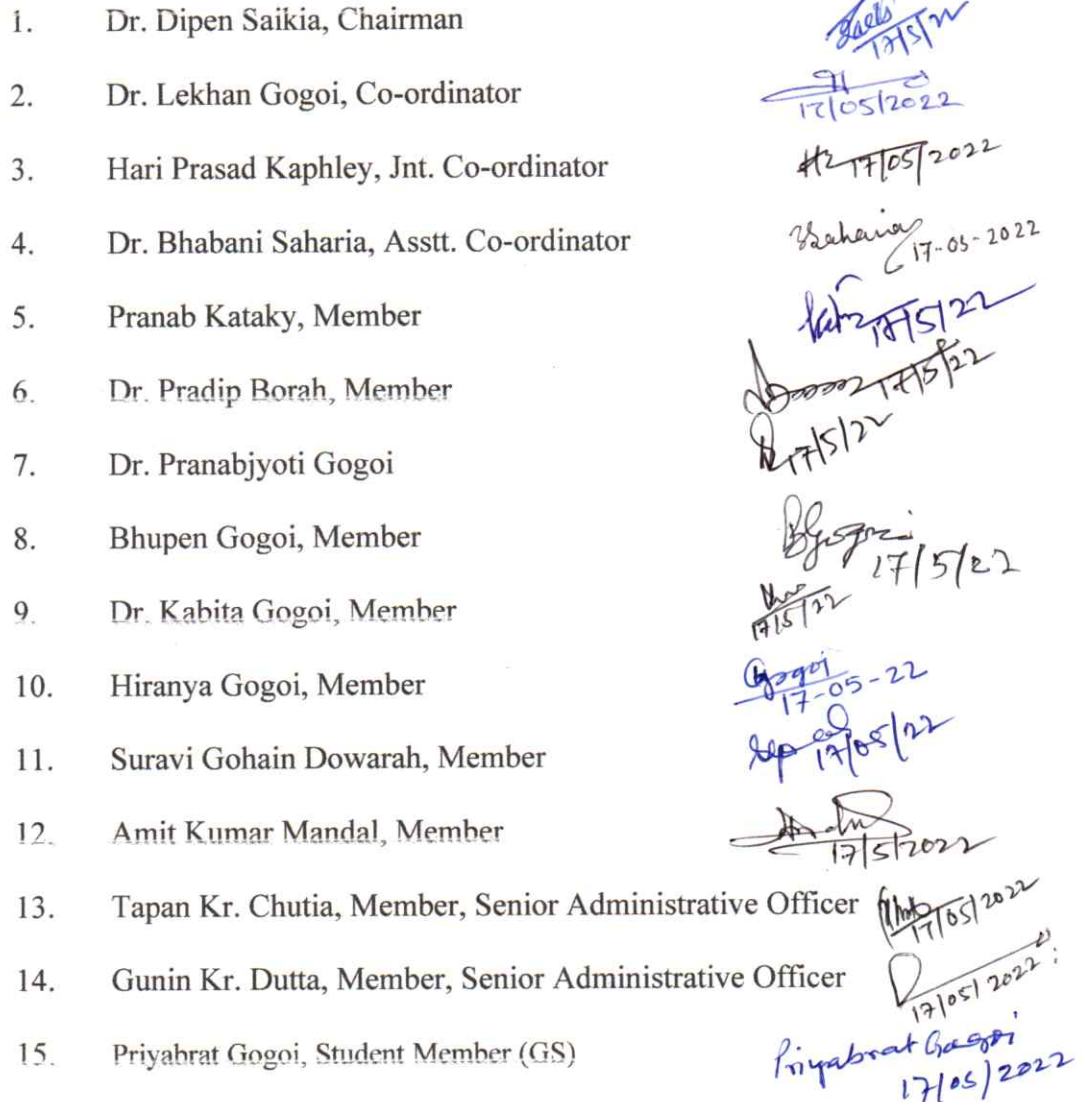 1. Dr. Dipen Saikia, Chairman 17/5/22
2. Dr. Lekhan Gogoi, Co-ordinator 17/05/2022
3. Hari Prasad Kaphley, Jnt. Co-ordinator 17/05/2022
4. Dr. Bhabani Saharia, Asstt. Co-ordinator Saharia 17-05-2022
5. Pranab Kataky, Member 17/5/22
6. Dr. Pradip Borah, Member 17/5/22
7. Dr. Pranabjyoti Gogoi 17/5/22
8. Bhupen Gogoi, Member BGogoi 17/5/22
9. Dr. Kabita Gogoi, Member 17/5/22
10. Hiranya Gogoi, Member Gogoi 17-05-22
11. Suravi Gohain Dowarah, Member 17/05/22
12. Amit Kumar Mandal, Member 17/5/2022
13. Tapan Kr. Chutia, Member, Senior Administrative Officer 17/05/2022
14. Gunin Kr. Dutta, Member, Senior Administrative Officer 17/05/2022
15. Priyabrat Gogoi, Student Member (GS) Priyabrat Gogoi
17/05/2022